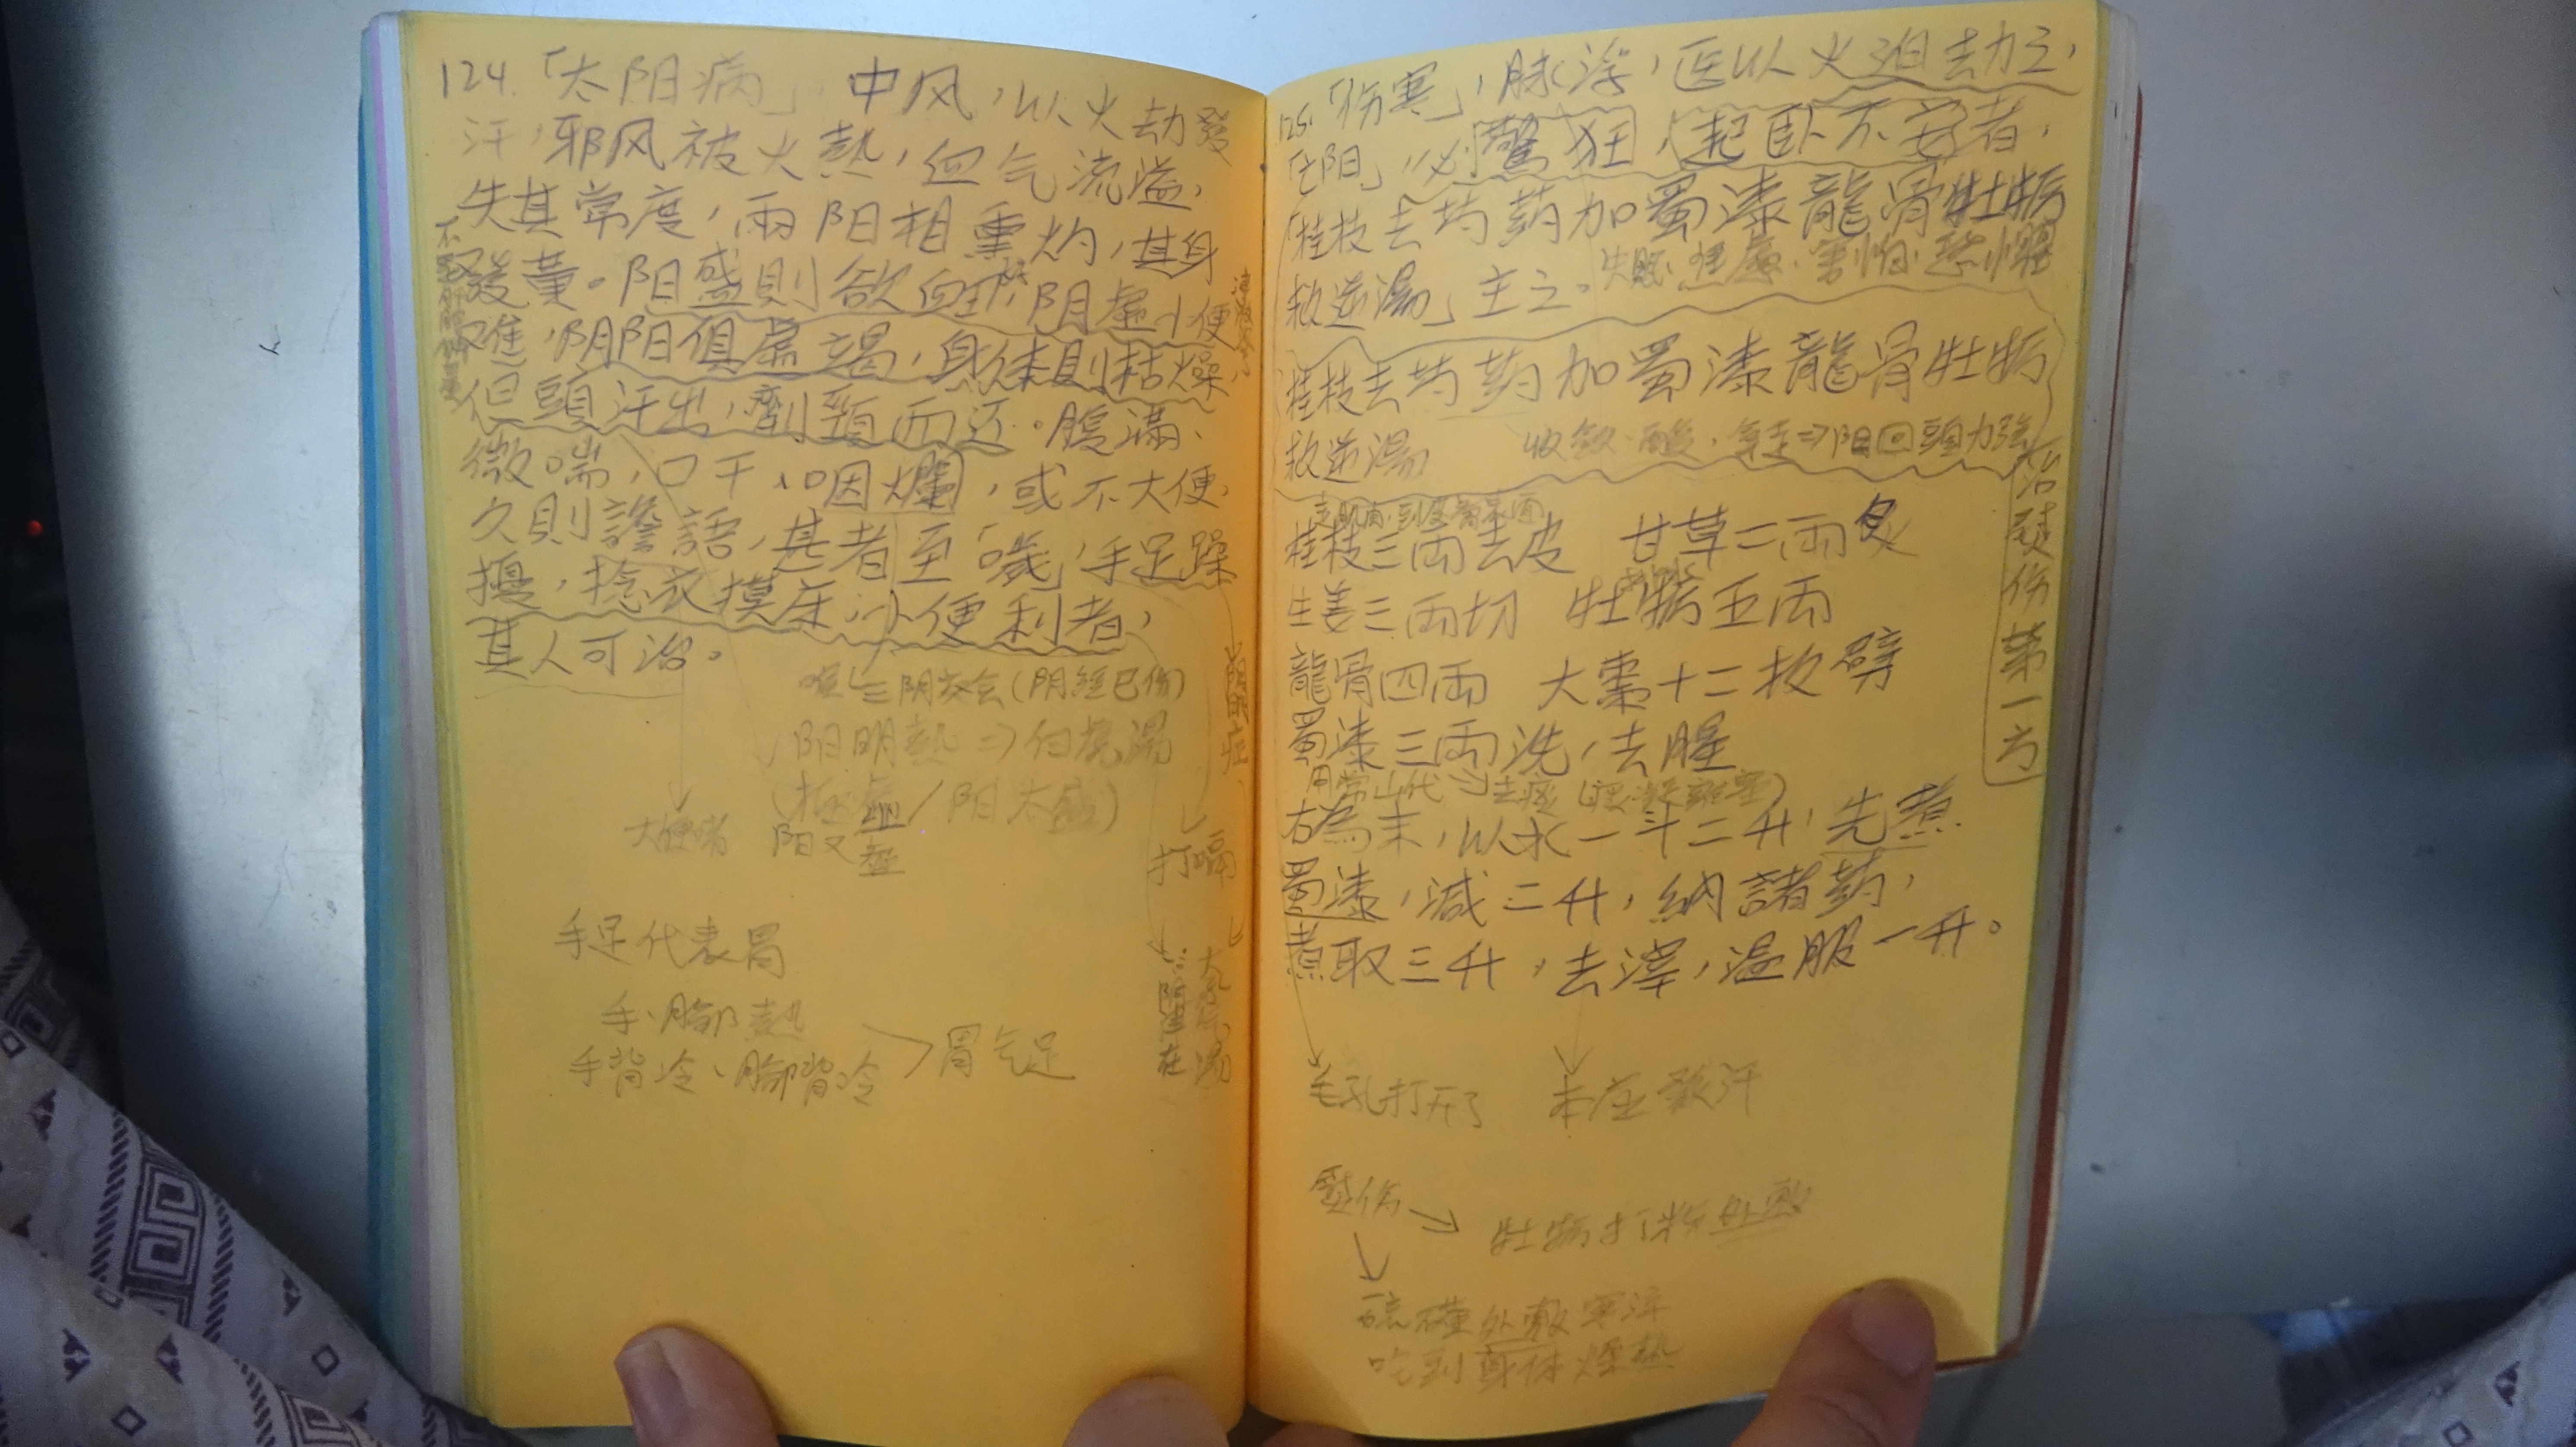 124.「太阳病」,中风,以火劫發
汗,邪风被火熱,血气流溢,
失其常度,兩阳相熏灼,其身
發黃。阳盛則欲衄,阴虛小便
难,阴阳俱虛竭,身体則枯燥,
但頭汗出,劑頸而还。腹滿、
微喘,口干,口因爛,或不大便,
久則譫語,甚者至「噦」,手足躁
擾,捻衣摸床,小便利者,
其人可治。
三阴交会(阴經已伤)
阳明熱⇒白虎湯
(极虛/阳太盛)
大便堵 阳又盛
打嗝
手足代表胃
手、腳熱
手背冷、腳背冷
胃气足
125.「伤寒」,脉浮,医以火迫劫之,
「亡阳」,必驚狂,起卧不安者,
「桂枝去芍药加蜀漆龍骨牡蛎
救逆湯」主之。
桂枝去芍药加蜀漆龍骨牡蛎
救逆湯
收歛、酸
治燙伤第一方
桂枝三兩去皮 甘草二兩炙
生姜三兩切 牡蛎五兩
龍骨四兩 大棗十二枚劈
蜀漆三兩洗,去腥
用常山代⇒去痰
右為末,以水一斗二升,先煮
蜀漆,減二升,納諸药,
煮取三升,去滓,溫服一升。
毛孔打开了 本应發汗
燙伤
牡蛎打粉外敷
硫磺外敷寒
吃到身体燥熱